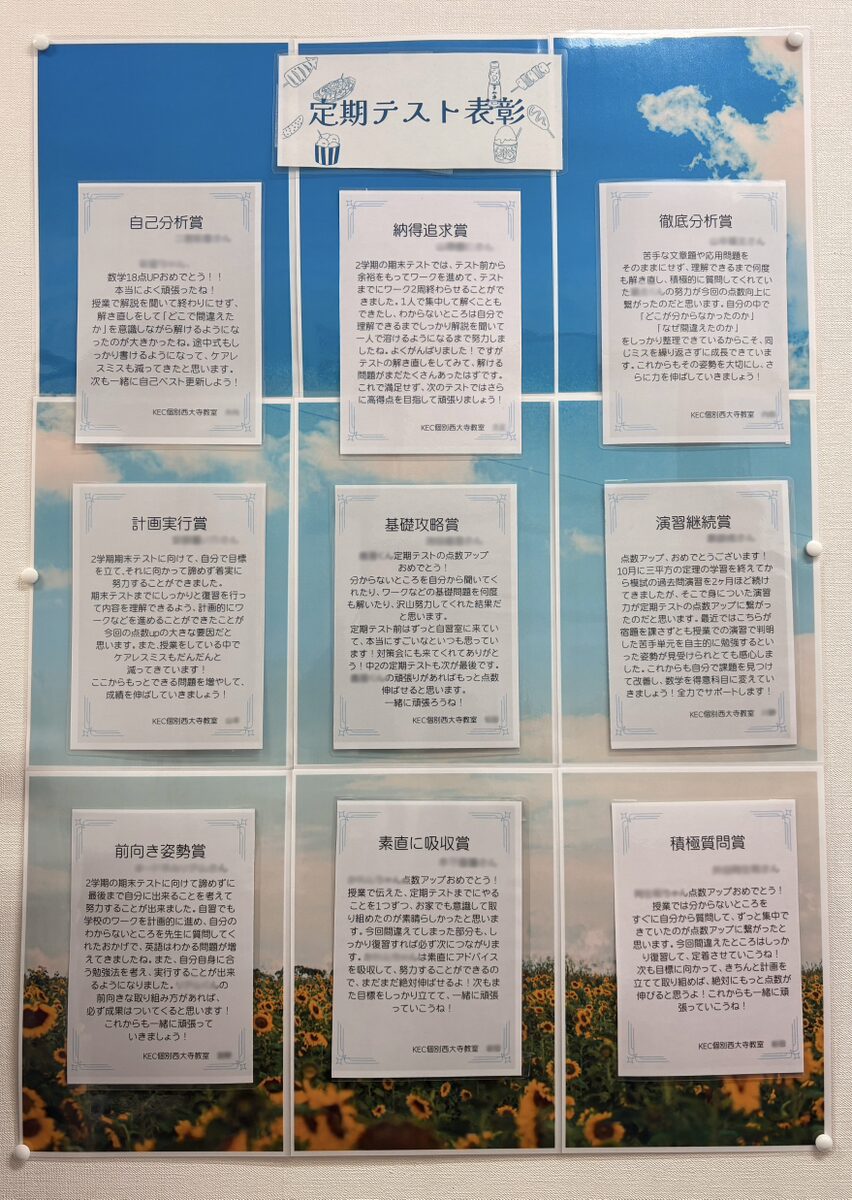 定期テスト表彰
自己分析賞
さん
ちゃん、
数学18点UPおめでとう！！
本当によく頑張ったね！
授業で解説を聞いて終わりにせず、
解き直しをして「どこで間違えた
か」を意識しながら解けるようになっ
たのが大きかったね。途中式もし
っかり書けるようになって、ケアレ
スミスも減ってきたと思います。
次も一緒に自己ベスト更新しよう！
KEC個別西大寺教室
納得追求賞
さん
2学期の期末テストでは、テスト前から
余裕をもってワークを進めて、テスト
までにワーク2周終わらせることがで
きました。1人で集中して解くことも
できたし、わからないところは自分で
理解できるまでしっかり解説を聞いて
一人で溶けるようになるまで努力しま
したね。よくがんばりました！ですが
テストの解き直しをしてみて、解ける
問題がまだたくさんあったはずです。
これで満足せず、次のテストではさら
に高得点を目指して頑張りましょう！
KEC個別西大寺教室
徹底分析賞
さん
苦手な文章題や応用問題を
そのままにせず、理解できるまで何度
も解き直し、積極的に質問してくれてい
た
の努力が今回の点数向上に
繋がったのだと思います。自分の中で
「どこが分からなかったのか」
「なぜ間違えたのか」
をしっかり整理できているからこそ、同
じミスを繰り返さずに成長できていま
す。これからもその姿勢を大切にし、さ
らに力を伸ばしていきましょう！
KEC個別西大寺教室
計画実行賞
さん
2学期期末テストに向けて、自分で目標
を立て、それに向かって諦めず着実に
努力することができました。
期末テストまでにしっかりと復習を行っ
て内容を理解できるよう、計画的にワ
ークなどを進めることができたことが
今回の点数upの大きな要因だと
思います。また、授業をしている中で
ケアレスミスもだんだんと
減ってきています！
ここからもっとできる問題を増やして、
成績を伸ばしていきましょう！
KEC個別西大寺教室
基礎攻略賞
さん
くん定期テストの点数アップ
おめでとう！
分からないところを自分から聞いてく
れたり、ワークなどの基礎問題を何度
も解いたり、沢山努力してくれた結果だ
と思います。
定期テスト前はずっと自習室に来てい
て、本当にすごいなといつも思ってい
ます！対策会にも来てくれてありがと
う！中2の定期テストも次が最後です。
くんの頑張りがあればもっと点数
伸ばせると思います。
一緒に頑張ろうね！
KEC個別西大寺教室
演習継続賞
さん
点数アップ、おめでとうございます！
10月に三平方の定理の学習を終えてか
ら模試の過去問演習を2ヶ月ほど続け
てきましたが、そこで身についた演習
力が定期テストの点数アップに繋がっ
たのだと思います。最近ではこちらが
宿題を課さずとも授業での演習で判明
した苦手単元を自主的に勉強するとい
った姿勢が見受けられとても感心しま
した。これからも自分で課題を見つけ
て改善し、数学を得意科目に変えてい
きましょう！全力でサポートします！
KEC個別西大寺教室
前向き姿勢賞
さん
2学期の期末テストに向けて諦めずに
最後まで自分に出来ることを考えて
努力することが出来ました。自習でも
学校のワークを計画的に進め、自分の
わからないところを先生に質問してく
れたおかげで、英語はわかる問題が増
えてきましたね。また、自分自身に合
う勉強法を考え、実行することが出来
るようになりました。
くんの
前向きな取り組み方があれば、
必ず成果はついてくると思います！
これからも一緒に頑張って
いきましょう！
KEC個別西大寺教室
素直に吸収賞
さん
ちゃん点数アップおめでとう！
授業で伝えた、定期テストまでにやる
ことを1つずつ、お家でも意識して取
り組めたのが素晴らしかったと思いま
す。今回間違えてしまった部分も、し
っかり復習すれば必ず次につながりま
す。
は素直にアドバイス
を吸収して、努力することができるの
で、まだまだ絶対伸ばせるよ！次もま
た目標をしっかり立てて、一緒に頑張
っていこうね！
KEC個別西大寺教室
積極質問賞
さん
ちゃん点数アップおめでとう！
授業では分からないところを
すぐに自分から質問して、ずっと集中で
きていたのが点数アップに繋がったと
思います。今回間違えたところはしっか
り復習して、定着させていこうね！
次も目標に向かって、きちんと計画を
立てて取り組めば、絶対にもっと点数が
伸びると思うよ！これからも一緒に頑
張っていこうね！
KEC個別西大寺教室